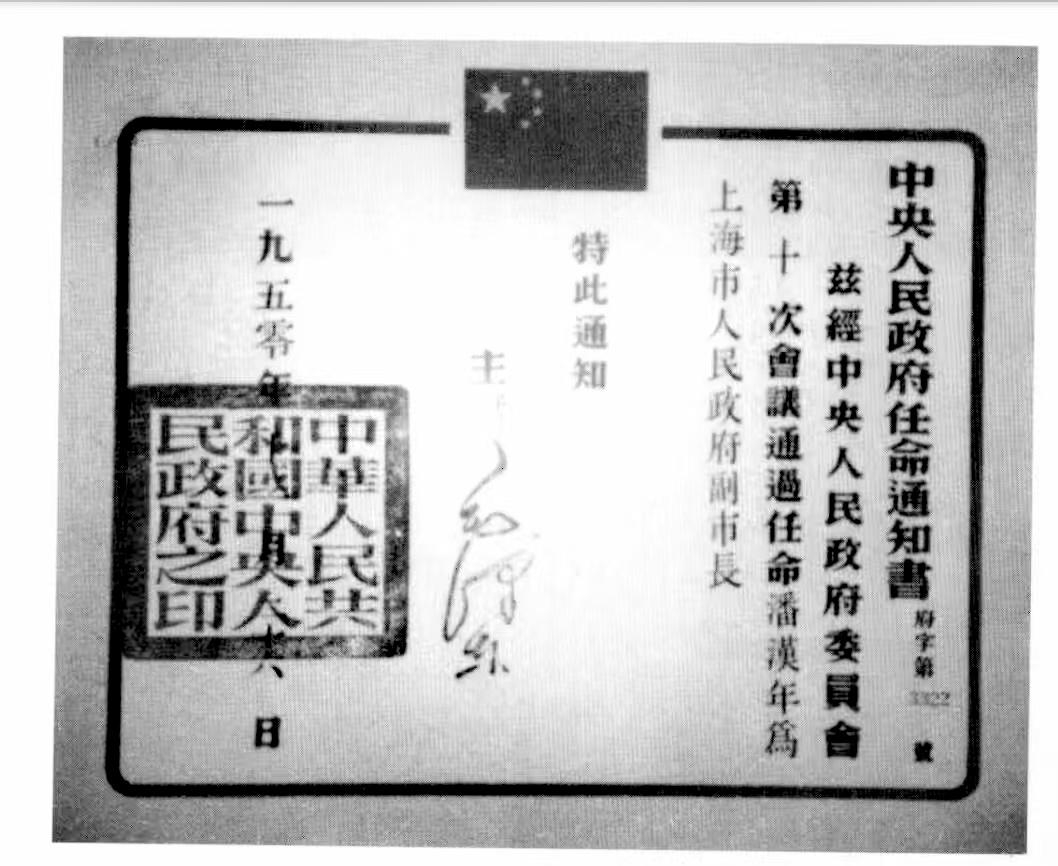 中央人民政府任命通知書 府字第3322號
茲經中央人民政府委員會
第十次會議通過任命潘漢年爲
上海市人民政府副市長
特此通知
主 毛澤東
一九五零年 月十六日
中華人民共
和國中央人
民政府之印